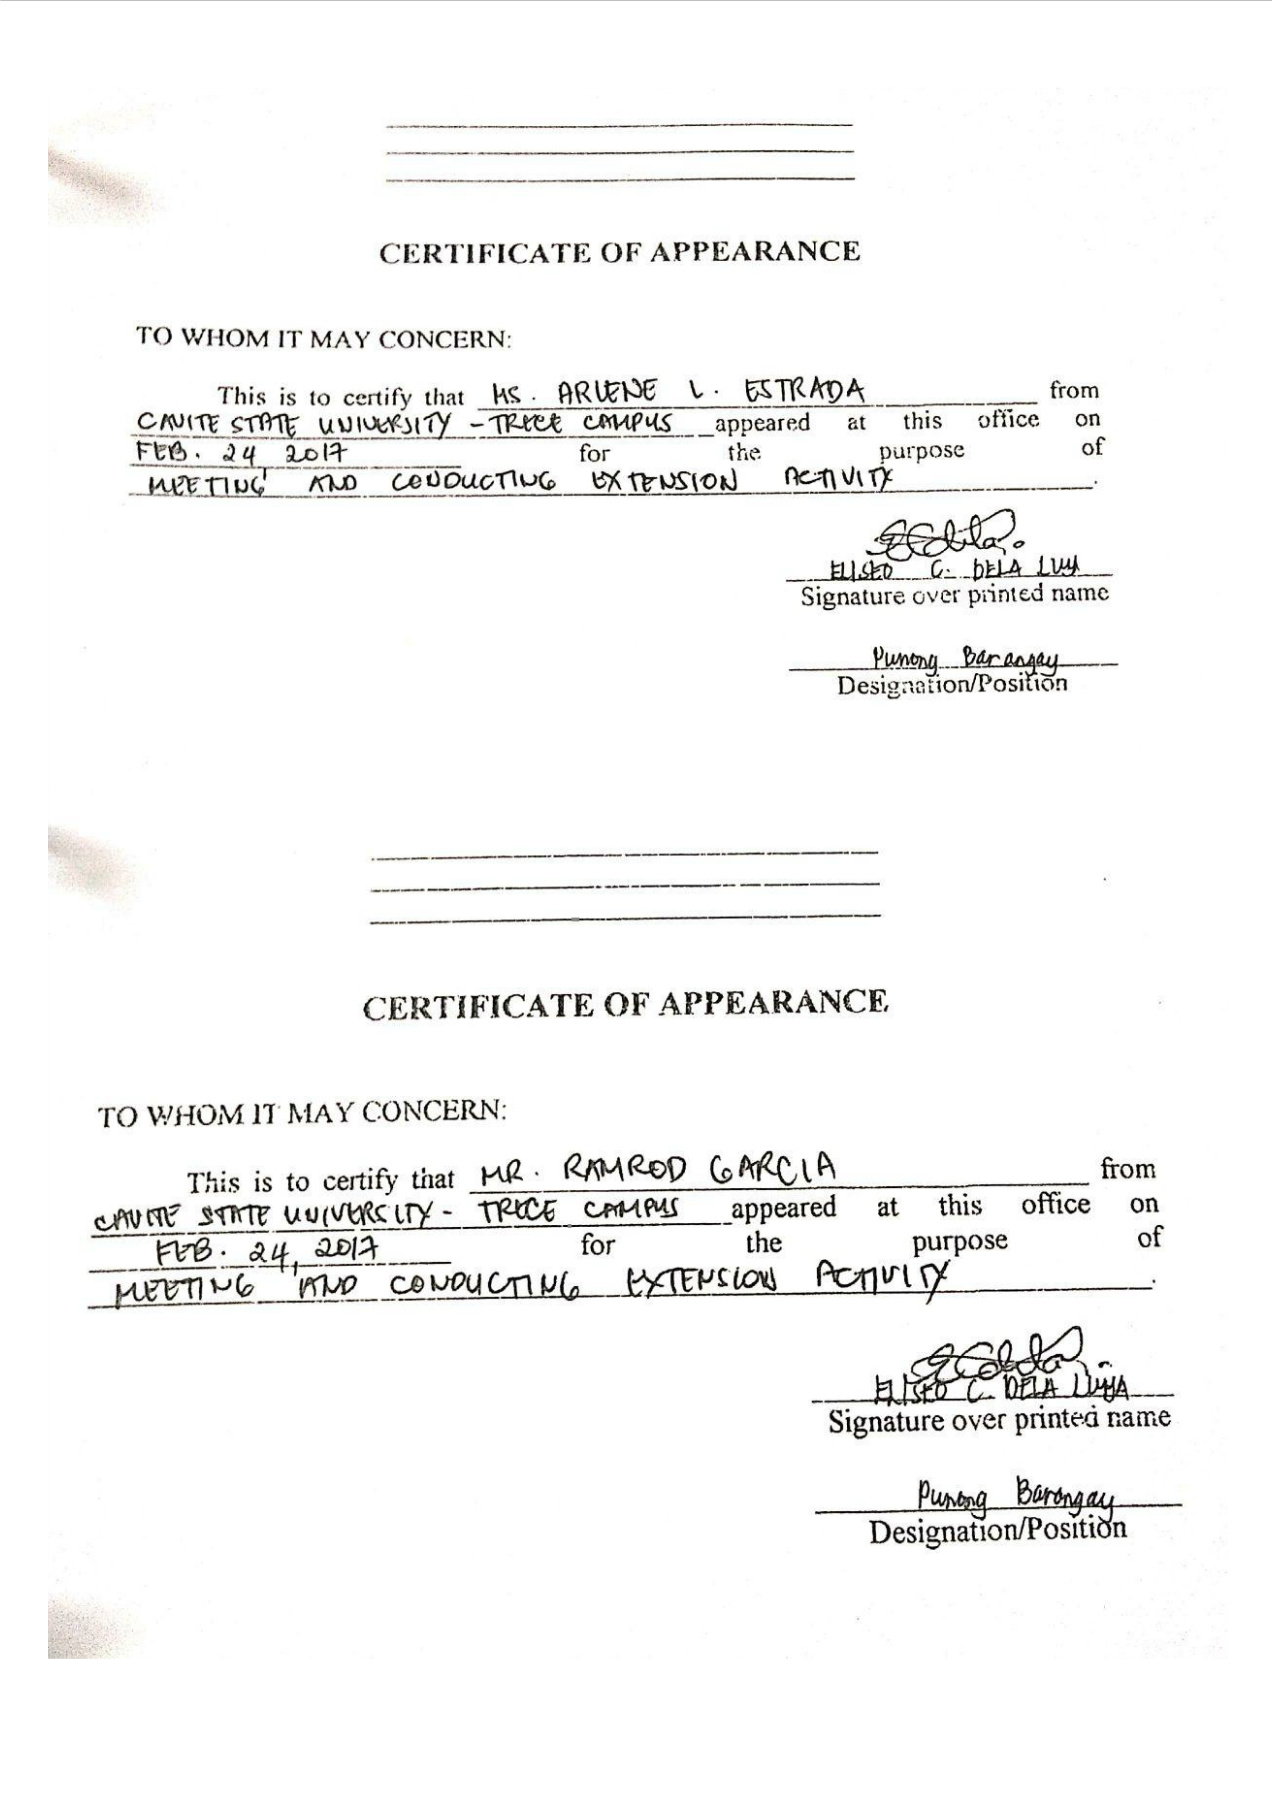 CERTIFICATE OF APPEARANCE
TO WHOM IT MAY CONCERN:
This is to certify that MS. ARLENE L. ESTRADA from
CAVITE STATE UNIVERSITY - TRECE CAMPUS appeared at this office on
FEB. 24 2017 for the purpose of
MEETING AND CONDUCTING EXTENSION ACTIVITY.
ELISEO C. DELA
Signature over printed name
Punong Barangay
Designation/Position
CERTIFICATE OF APPEARANCE
TO WHOM IT MAY CONCERN:
This is to certify that MR. RAMROD GARCIA from
CAVITE STATE UNIVERSITY - TRECE CAMPUS appeared at this office on
FEB. 24, 2017 for the purpose of
MEETING AND CONDUCTING EXTENSION ACTIVITY.
ELISEO C. DELA
Signature over printed name
Punong Barangay
Designation/Position